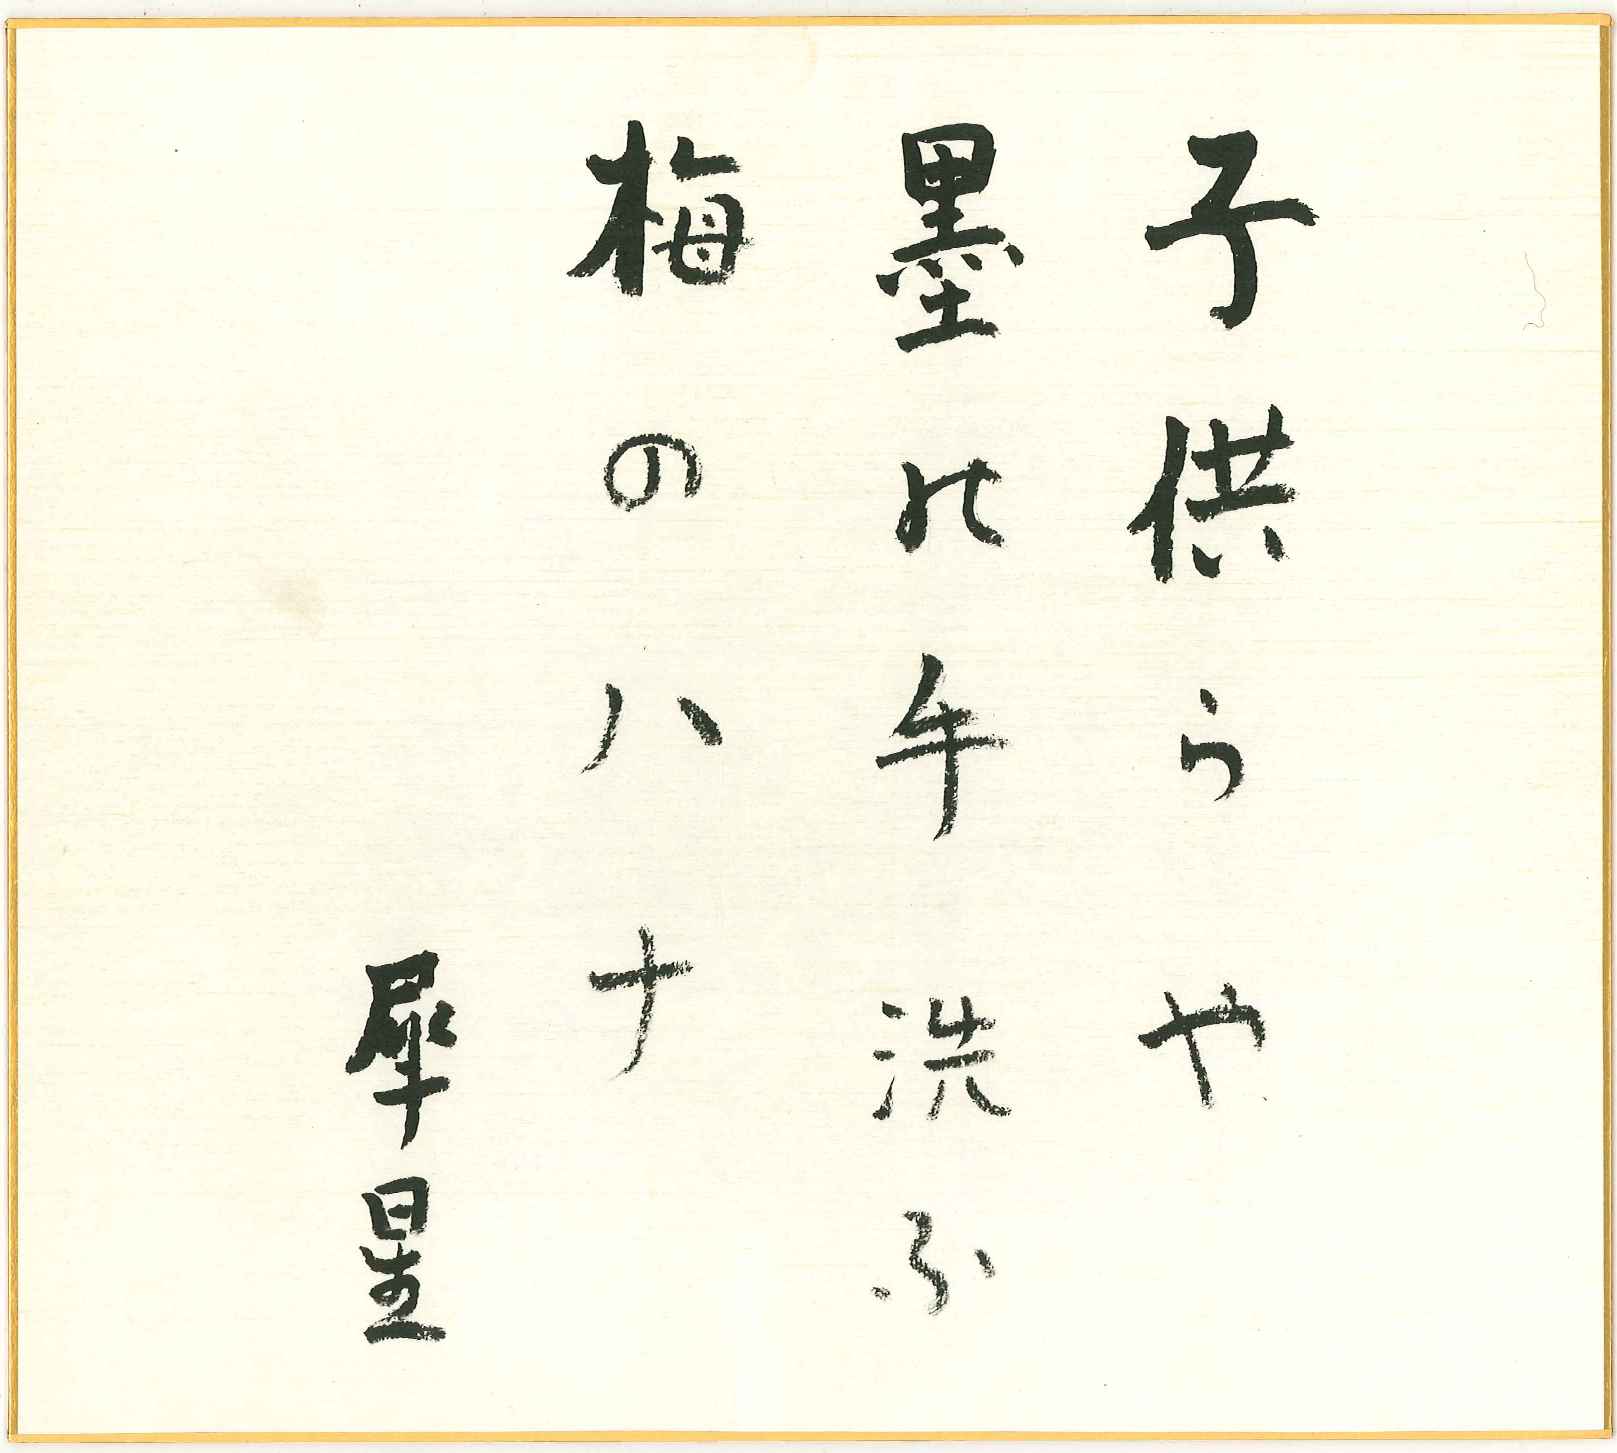 子供らや
墨の手洗ふ
梅のハナ
犀星